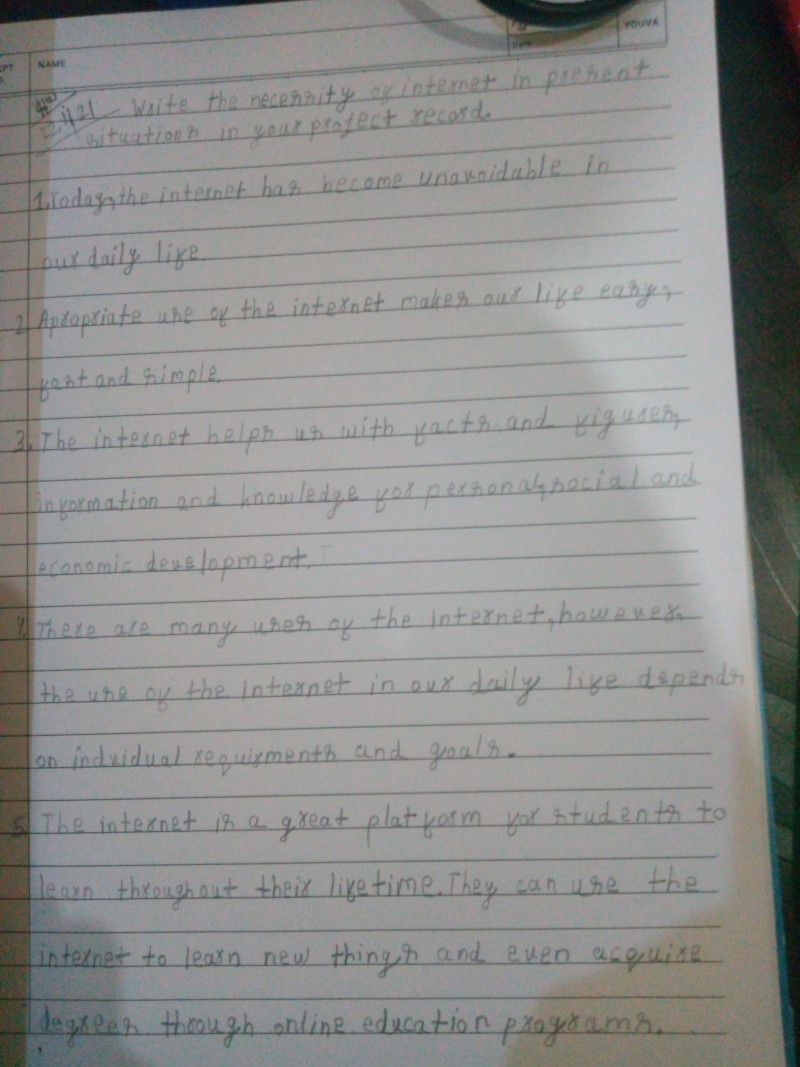 YOUVA
PT
NAME
Date
21 Write the necessity of internet in present
situations in your project record.
1. Today, the internet has become unavoidable in
our daily life.
2. Apropriate use of the internet makes our life easy,
fast and simple.
3. The internet helps us with facts and figures,
information and knowledge for personal, social and
economic development.
4. There are many uses of the internet, however,
the use of the internet in our daily life depends
on indvidual requirments and goals.
5. The internet is a great platform for students to
learn throughout their lifetime. They can use the
internet to learn new things and even acquire
degrees through online education programs.